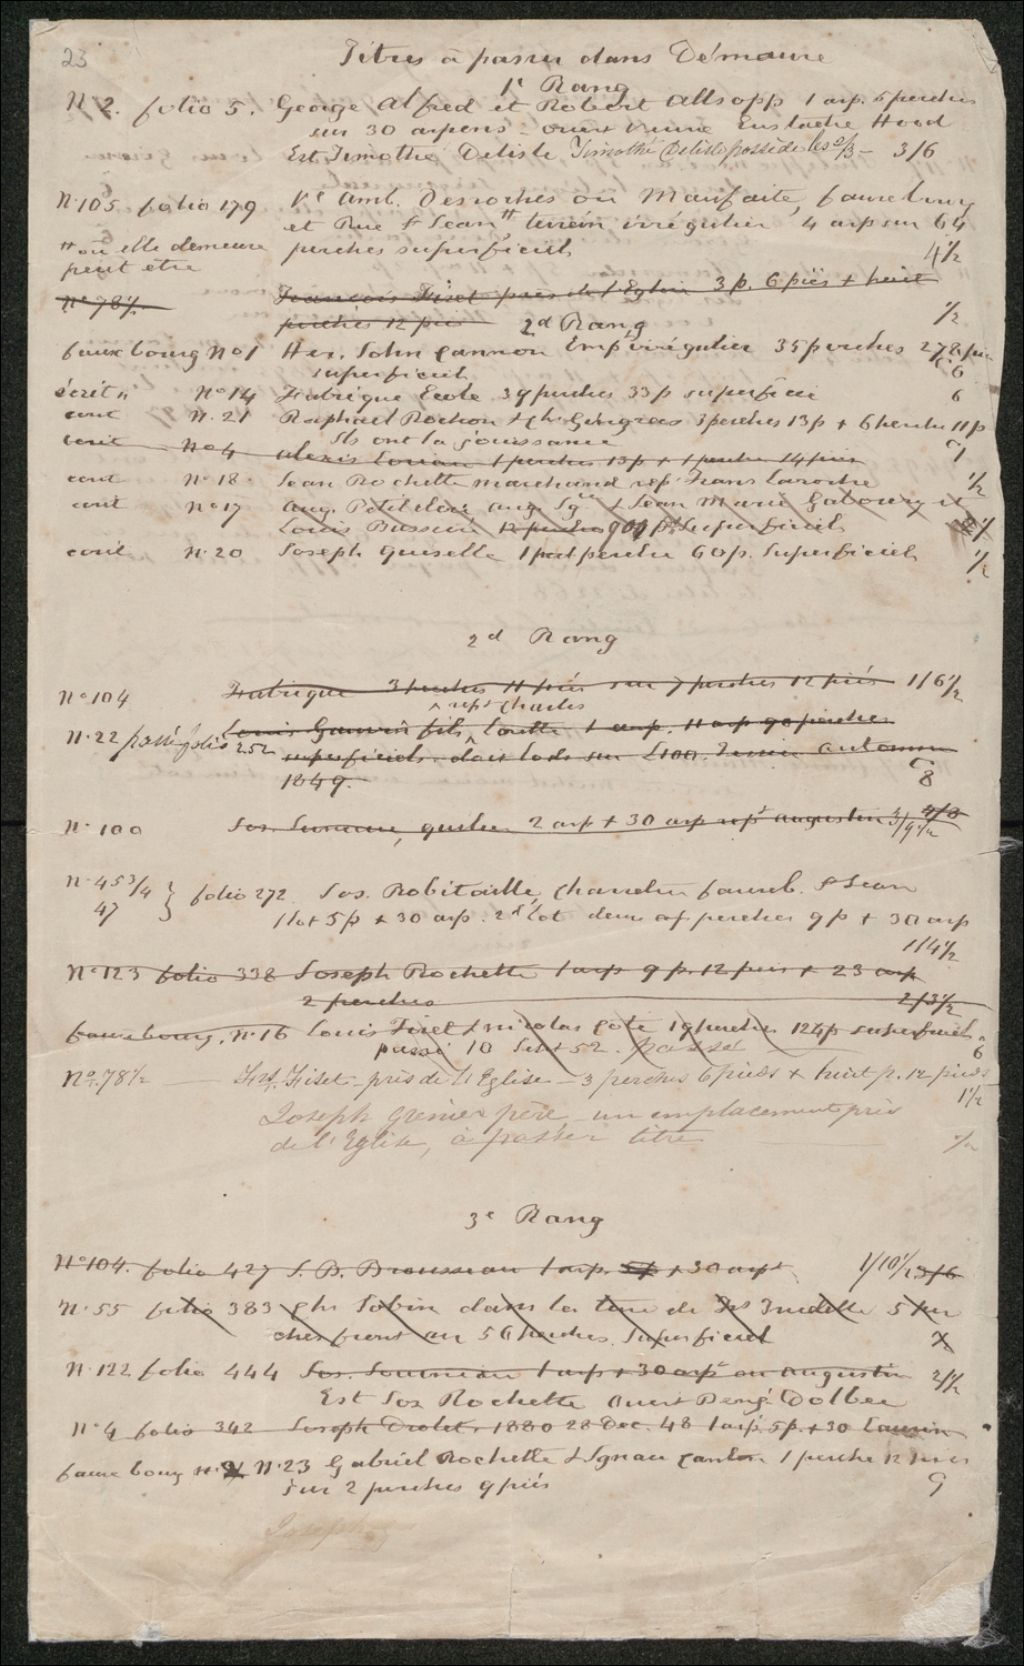 23
Titres à passer dans Démaure
1r Rang
N 2. folio 5. George Alfred et Robert Allsopp 1 arp. 5 perches
sur 30 arpens - ouest Veuve Eustache Hood
Est Timothé Delisle Timothé Delisle possède les 2/3 - 3/6
N. 105 folio 179 Ve Amb. Desroches ou Maufaite, faurebourg
et Rue St Jean " terrein irrégulier 4 arp sur 64
" où elle demeure perches superficiels 4 1/2
peut etre
No 78 1/2 François Fiset près de l'Eglise 3 p. 6 piés + huit
perches 12 piés 1/2
2d Rang
fauxbourg No 1 Her. John Cannon Emp irrégulier 35 perches 278 piés
superficiels 6
écrit " No 14 Fabrique Ecole 39 perches 33 p superficiel 6
N. 21 Raphael Rochon + Chs Gingras 3 perches 13 p + 6 perches 11 p
Ils ont la jouissance
No 4 Alexis 1 perches 13 p + 1 perche 14 piés 1
No 18 Jean Rochette marchand rep. Frans Laroche 1/2
No 17 Aug. Petitclerc aug. + Jean Marie Gaboury et
Louis Bussière 12 perches 901 p. superficiel
N. 20 Joseph Guiselle 1 perche 60 p. superficiels 1/2
2d Rang
No 104 Fabrique 3 perches 11 piés sur 7 perches 12 piés 1/6 1/2
rept Charles
N. 22 passé folio 252 Louis Gauvin fils, 1 arp. 11 arp 90 perches
superficiels. doit lods sur £100. automne
1849. 8
N. 100 Jos. 2 arp + 30 arp rept Augustin 3/9 1/2
N. 45 3/4
47 } folio 272 Jos. Robitaille, charretier faureb. St Jean
1 lot 5 p + 30 arp. 2d lot demi arp perches 9 p + 30 arp
1/4 1/2
No 123 folio 338 Joseph Rochette 1 arp 9 p. 12 piés + 23 arp
2 perches 2/3 1/2
faurebourg, N. 16 Louis Fiset + Nicolas Coté 19 perches 124 p superficiels
passé 10 Sept 52. passé 6
No. 78 1/2 Frs. Fiset - près de l'Eglise - 3 perches 6 pieds x huit p. 12 pieds
1 1/2
Joseph Grenier père un emplacement près
de l'Eglise, à passer titre
3e Rang
No 104. folio 427 J. B. Brousseau 1 arp. + 30 arpt 1/10 1/2 3/6
N. 55 folio 383 Chs Tobin dans la terre de 5 per
ches front sur 56 perches. superficiel
N. 122 folio 444 Jos. 1 arp + 30 arpt ou Augustin 2/1/2
Est Jos Rochette Ouest Benj. Dolbec
No 4 folio 342 Joseph Drolet. 1880 28 Dec. 48 1 arp. 5 p. + 30
faurebourg N. 23 Gabriel Rochette + Ignace Cantin 1 perche 12 piés
sur 2 perches 9 piés 9
Joseph